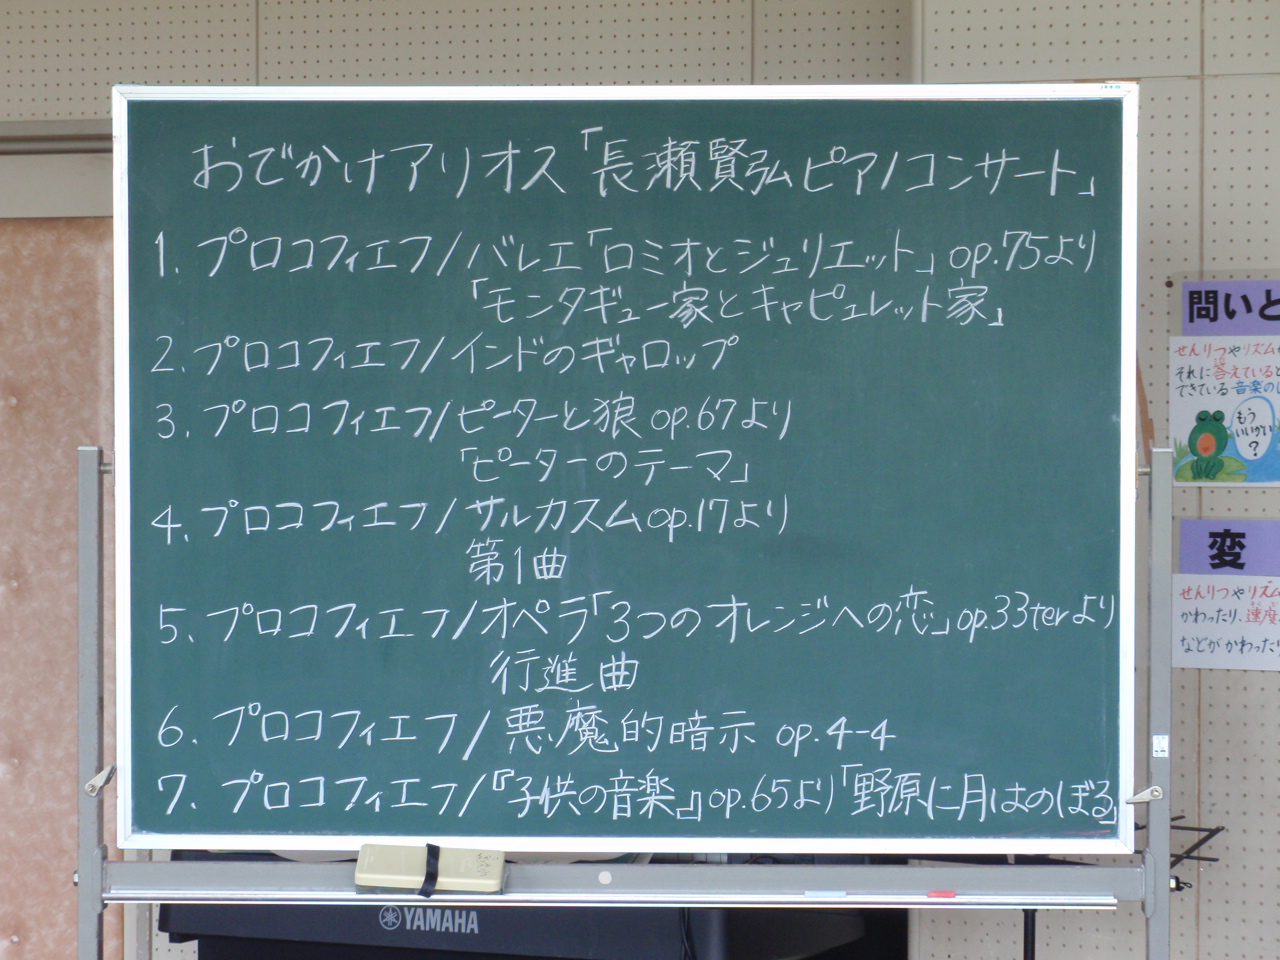 おでかけアリオス「長瀬賢弘ピアノコンサート」
1. プロコフィエフ/バレエ「ロミオとジュリエット」op.75より
「モンタギュー家とキャピュレット家」
2. プロコフィエフ/インドのギャロップ
3. プロコフィエフ/ピーターと狼 op.67より
「ピーターのテーマ」
4. プロコフィエフ/サルカスム op.17より
第1曲
5. プロコフィエフ/オペラ「3つのオレンジへの恋」op.33terより
行進曲
6. プロコフィエフ/悪魔的暗示 op.4-4
7. プロコフィエフ/『子供の音楽』op.65より「野原に月はのぼる」
YAMAHA
問いと
せんりつやリズムが
それに答えていると
できている音楽の
もう
いいかい
?
変
せんりつやリズム
かわったり、速度
などがかわったり